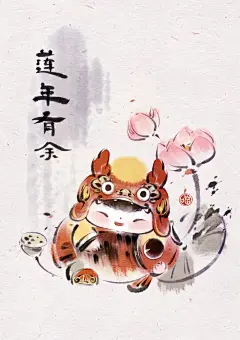 莲年有余